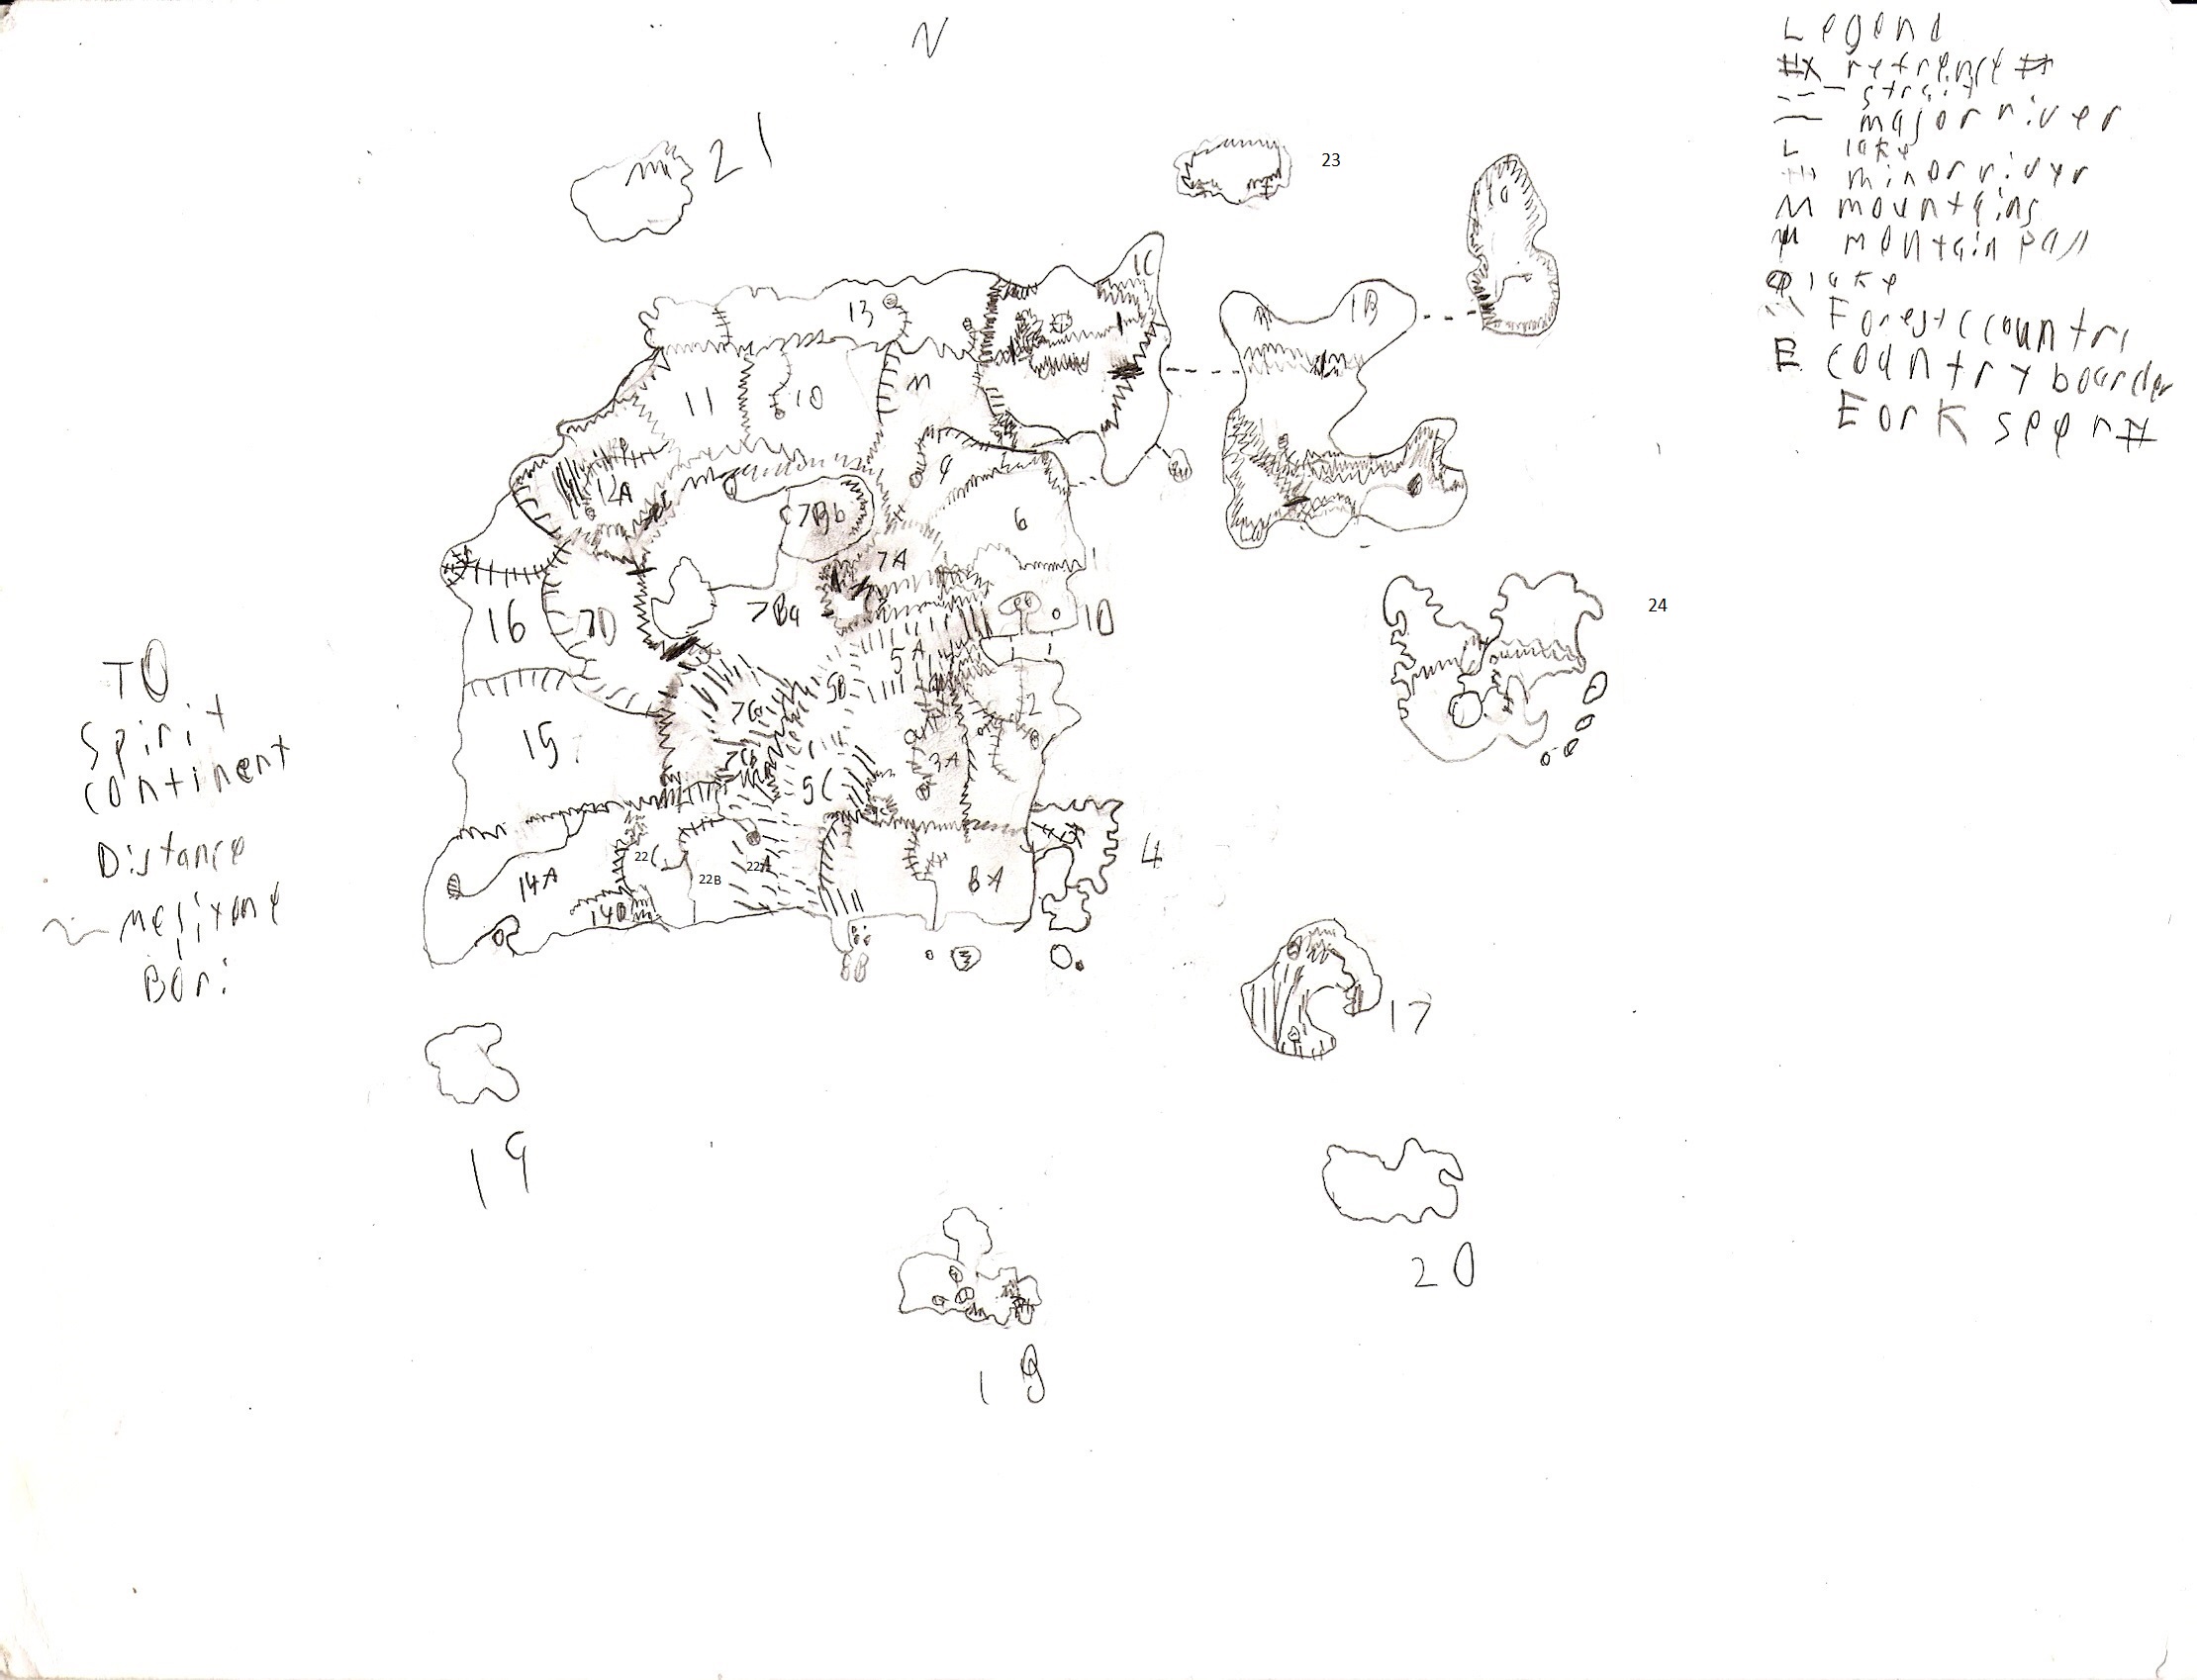 N
Legend
#X refrence #
strait
major river
L lake
minor river
M mountains
montain pass
lake
Forest country
E country boarder
Fork spear #
21
23
1C
1B
13
1
11
10
9
12A
7Bb
6
7A
16
7D
7Ba
1D
24
5A
5B
2
7C
15
3A
5C
4
22C
22A
22B
14A
8A
14B
8B
TO
Spirit
continent
Distance
Bori
17
19
20
18